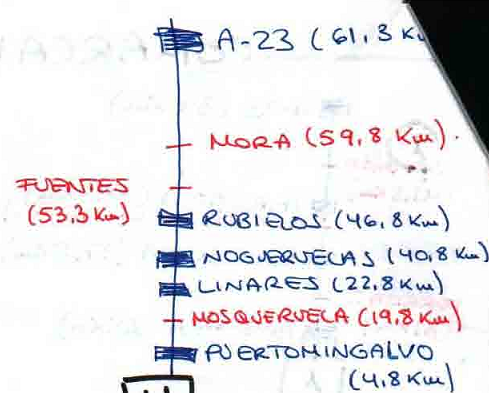 A-23 (61,3 K
MORA (59,8 Km).
FUENTES
(53,3 Km)
RUBIELOS (46,8 Km)
NOGUERUELAS (40,8 Km)
LINARES (22,8 Km)
MOSQUERUELA (19,8 Km)
PUERTOMINGALVO
(4,8 Km)